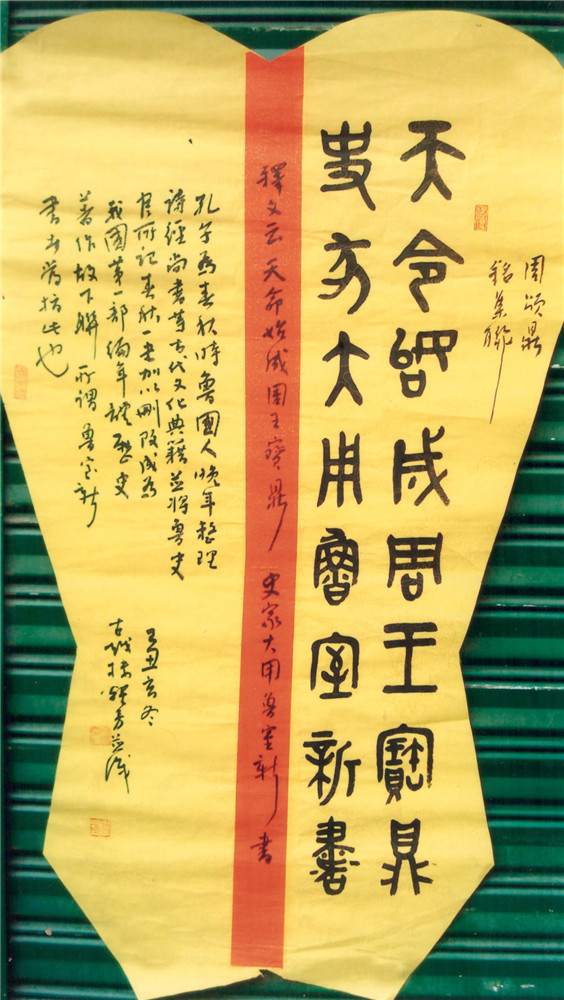 周頌鼎
銘集聯
天令䛐成周王寶鼎
史家大用魯室新書
釋文云 天命始成周王寶鼎 史家大用魯室新書
孔子為春秋時魯國人晚年整理
詩經尚書等古代文化典籍並將魯史
官所記春秋一書加以刪改成為
我國第一部編年體歷史
著作故下聯所謂魯室新
書者蓋指此也
丑亥冬
古越